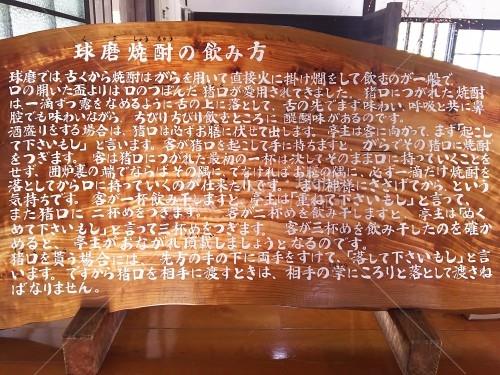 球磨焼酎の飲み方
くましょうちゅう
球磨では古くから焼酎はがらを用いて直接火に掛け燗をして飲むのが一般で、
口の開いた盃よりは口のつぼんだ猪口が愛用されてきました。猪口につがれた焼酎
は一滴ずつ露をなめるように舌の上に落として、舌の先でまず味わい、呼吸と共に鼻
腔でも味わいながら、ちびりちびり飲むところに醍醐味があるのです。
酒盛りをする場合は、猪口は必ずお膳に伏せて出します。亭主は客に向かって、まず「起こし
て下さいもし」と言います。客が猪口を起こして手に持ちますと、がらでその猪口に焼酎
をつぎます。客は猪口につがれた最初の一杯は決してそのまま口に持っていくことを
せず、囲炉裏の端でならばその隅に、でなければお膳の隅に、必ず一滴だけ焼酎を
落としてから口に持っていくのが仕来たりです。まず神様にささげてから、という
気持ちです。客が一杯飲み干しますと、亭主は「重ねて下さいもし」と言って、
また猪口に二杯めをつぎます。客が二杯めを飲み干しますと、亭主は「ぬく
めて下さいもし」と言って三杯めをつぎます。客が三杯めを飲み干したのを確か
めると、亭主がおながれ頂戴しましょうとなるのです。
猪口を貰う場合には、先方の手の下に両手をすけて、「落して下さいもし」と言
います。ですから猪口を相手に渡すときは、相手の掌にころりと落として渡さね
ばなりません。